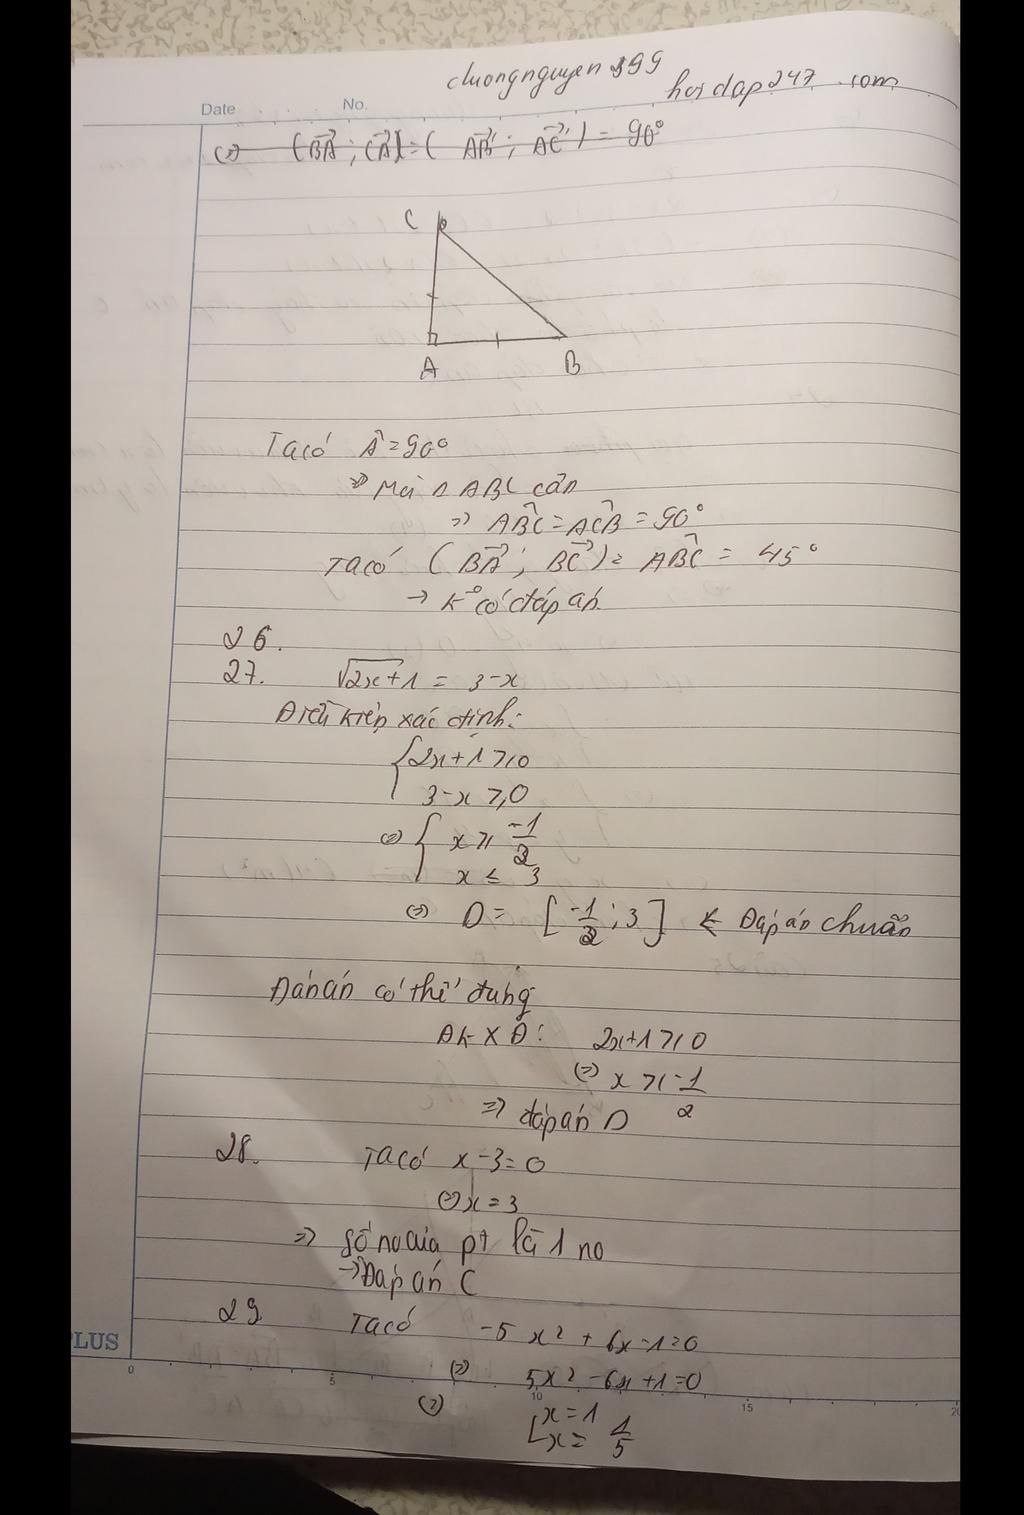 chuongnguyen 899
hoidap247.com
Date No.
(=) (BA; CA) = ( AB'; AC' ) = 90°
C
A B
Ta có Â = 90°
Mà Δ ABC cân
=> ABC = ACB = 90°
Ta có (BA; BC) = ABC = 45°
→ K° có đáp án
26.
27. √2x+1 = 3-x
Điều kiện xác định:
{2x+1 ≥ 0
3-x ≥ 0
(=) { x ≥ -1/2
x ≤ 3
(=) D = [-1/2; 3] ← Đáp án chuẩn
Đán án có thể đúng
ĐKXĐ: 2x+1 ≥ 0
(=) x ≥ -1/2
=> đáp án D
28. Ta có x-3=0
(=) x = 3
=> số no của pt là 1 no
→ Đáp án C
29 Ta có -5x² + 6x-1=0
PLUS
(=) 5x² -6x+1=0
0 5 10 15 20
(=) [x=1
x= 1/5